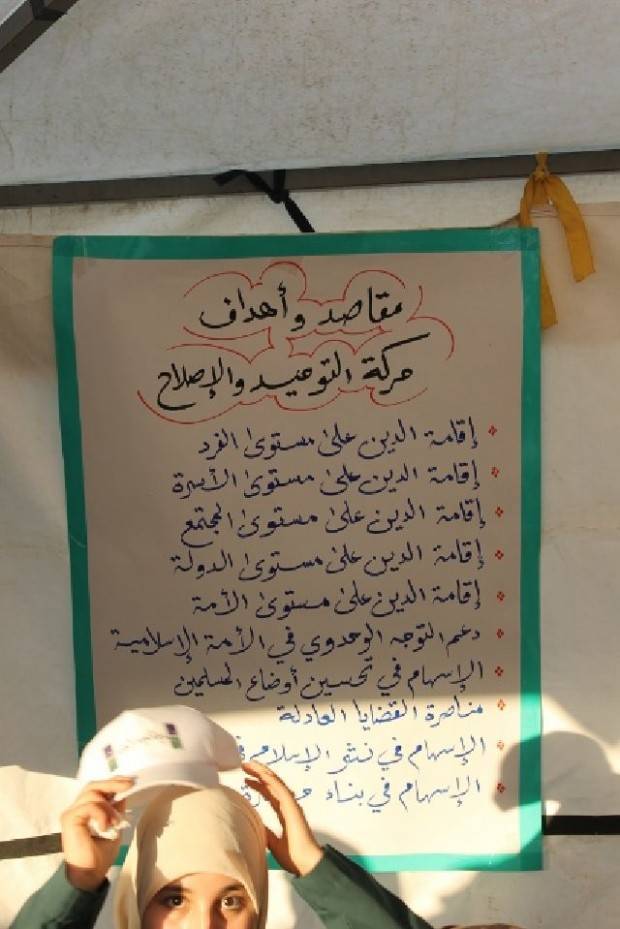 مقاصد وأهداف
حركة التوحيد والإصلاح
إقامة الدين على مستوى الفرد
إقامة الدين على مستوى الأسرة
إقامة الدين على مستوى المجتمع
إقامة الدين على مستوى الدولة
إقامة الدين على مستوى الأمة
دعم التوجه الوحدوي في الأمة الإسلامية
الإسهام في تحسين أوضاع المسلمين
مناصرة القضايا العادلة
الإسهام في نشر الإسلام
الإسهام في بناء